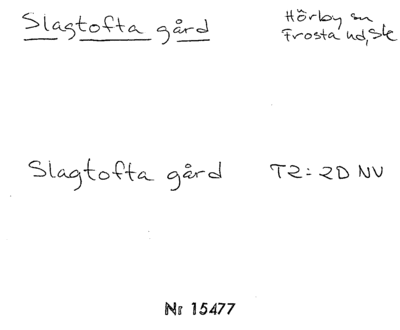 Slagtofta gård
Hörby sn
Frosta hd, Sk
Slagtofta gård T2: 2D NV
Nr 15477